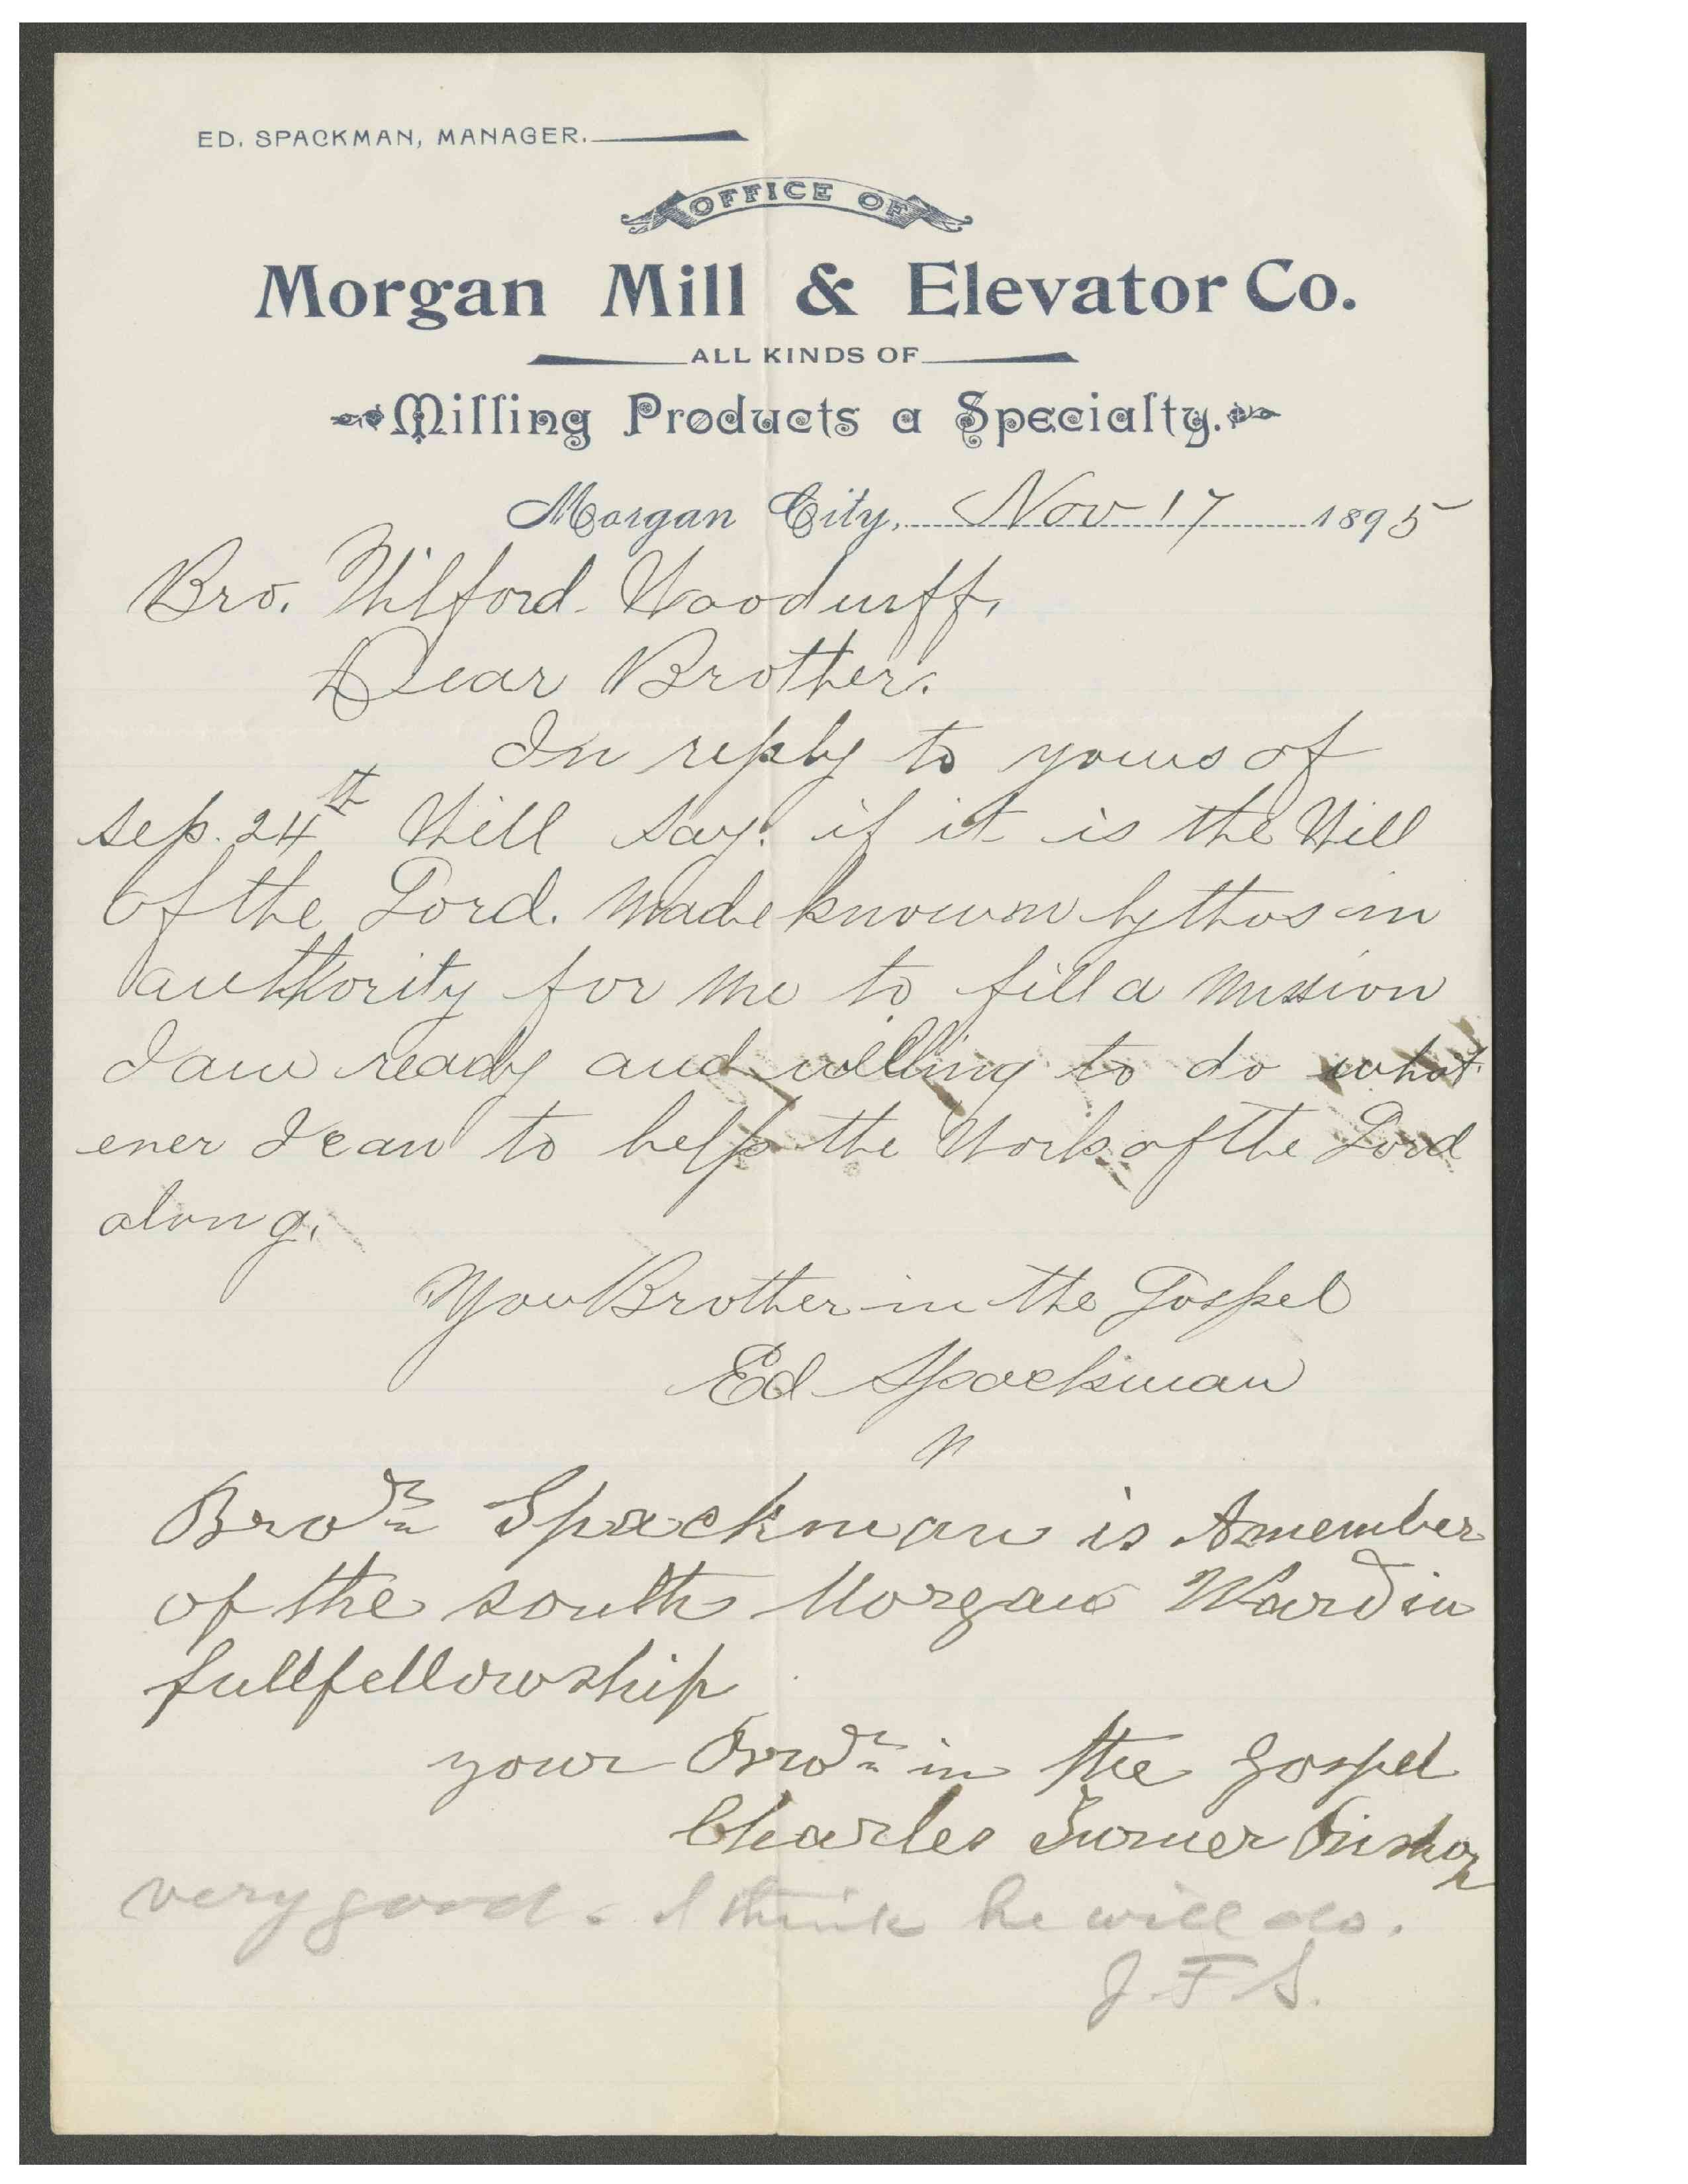 ED. SPACKMAN, MANAGER.
OFFICE OF
Morgan Mill & Elevator Co.
ALL KINDS OF
Milling Products a Specialty.
Morgan City, Nov 17 1895
Bro. Wilford Woodurff,
Dear Brother.
In reply to yours of
sep. 24th Will say. if it is the Will
Of the Lord. Made known by thos in
authority for me to fill a Mission
I am ready and willing to do what
ever I can to help the Work of the Lord
along.
Your Brother in the Gospel
Ed Spackman
Brodr Spackman is A member
of the south Morgan Ward in
full fellowship
your Brodr in the gospel
Charles Turner Bishop
very good. I think he will do.
J. F. S.